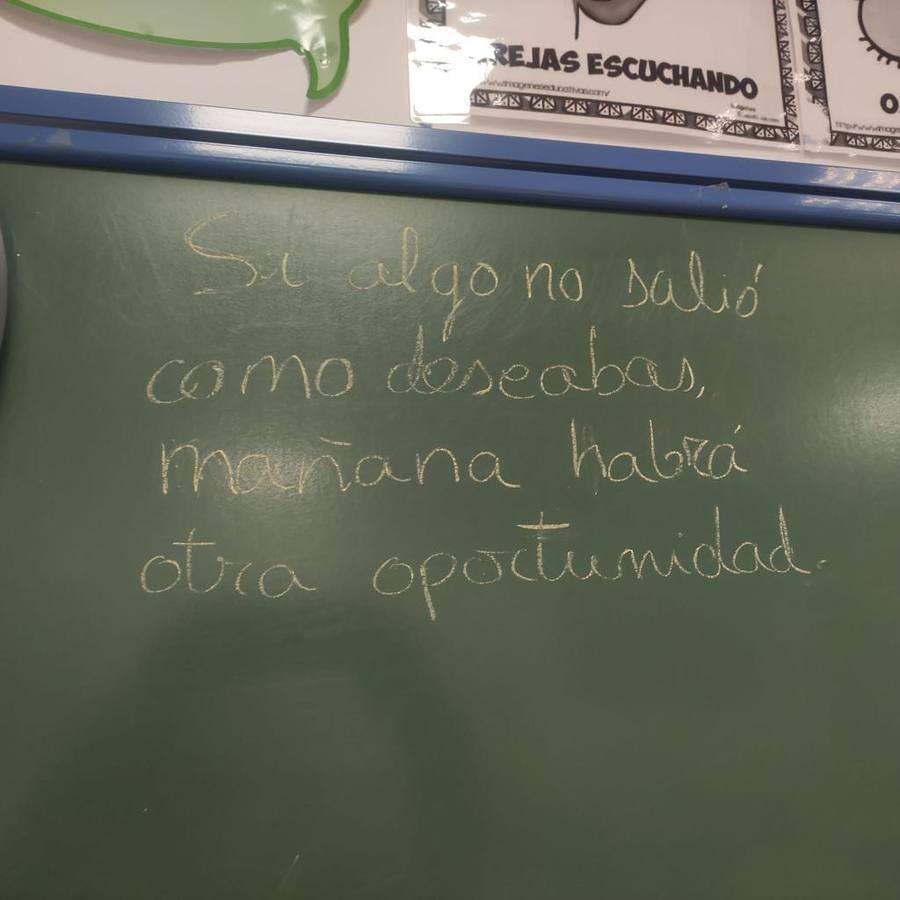 REJAS ESCUCHANDO
www.imageneseducativas.com/
O
Si algo no salió
como deseabas,
mañana habrá
otra oportunidad.